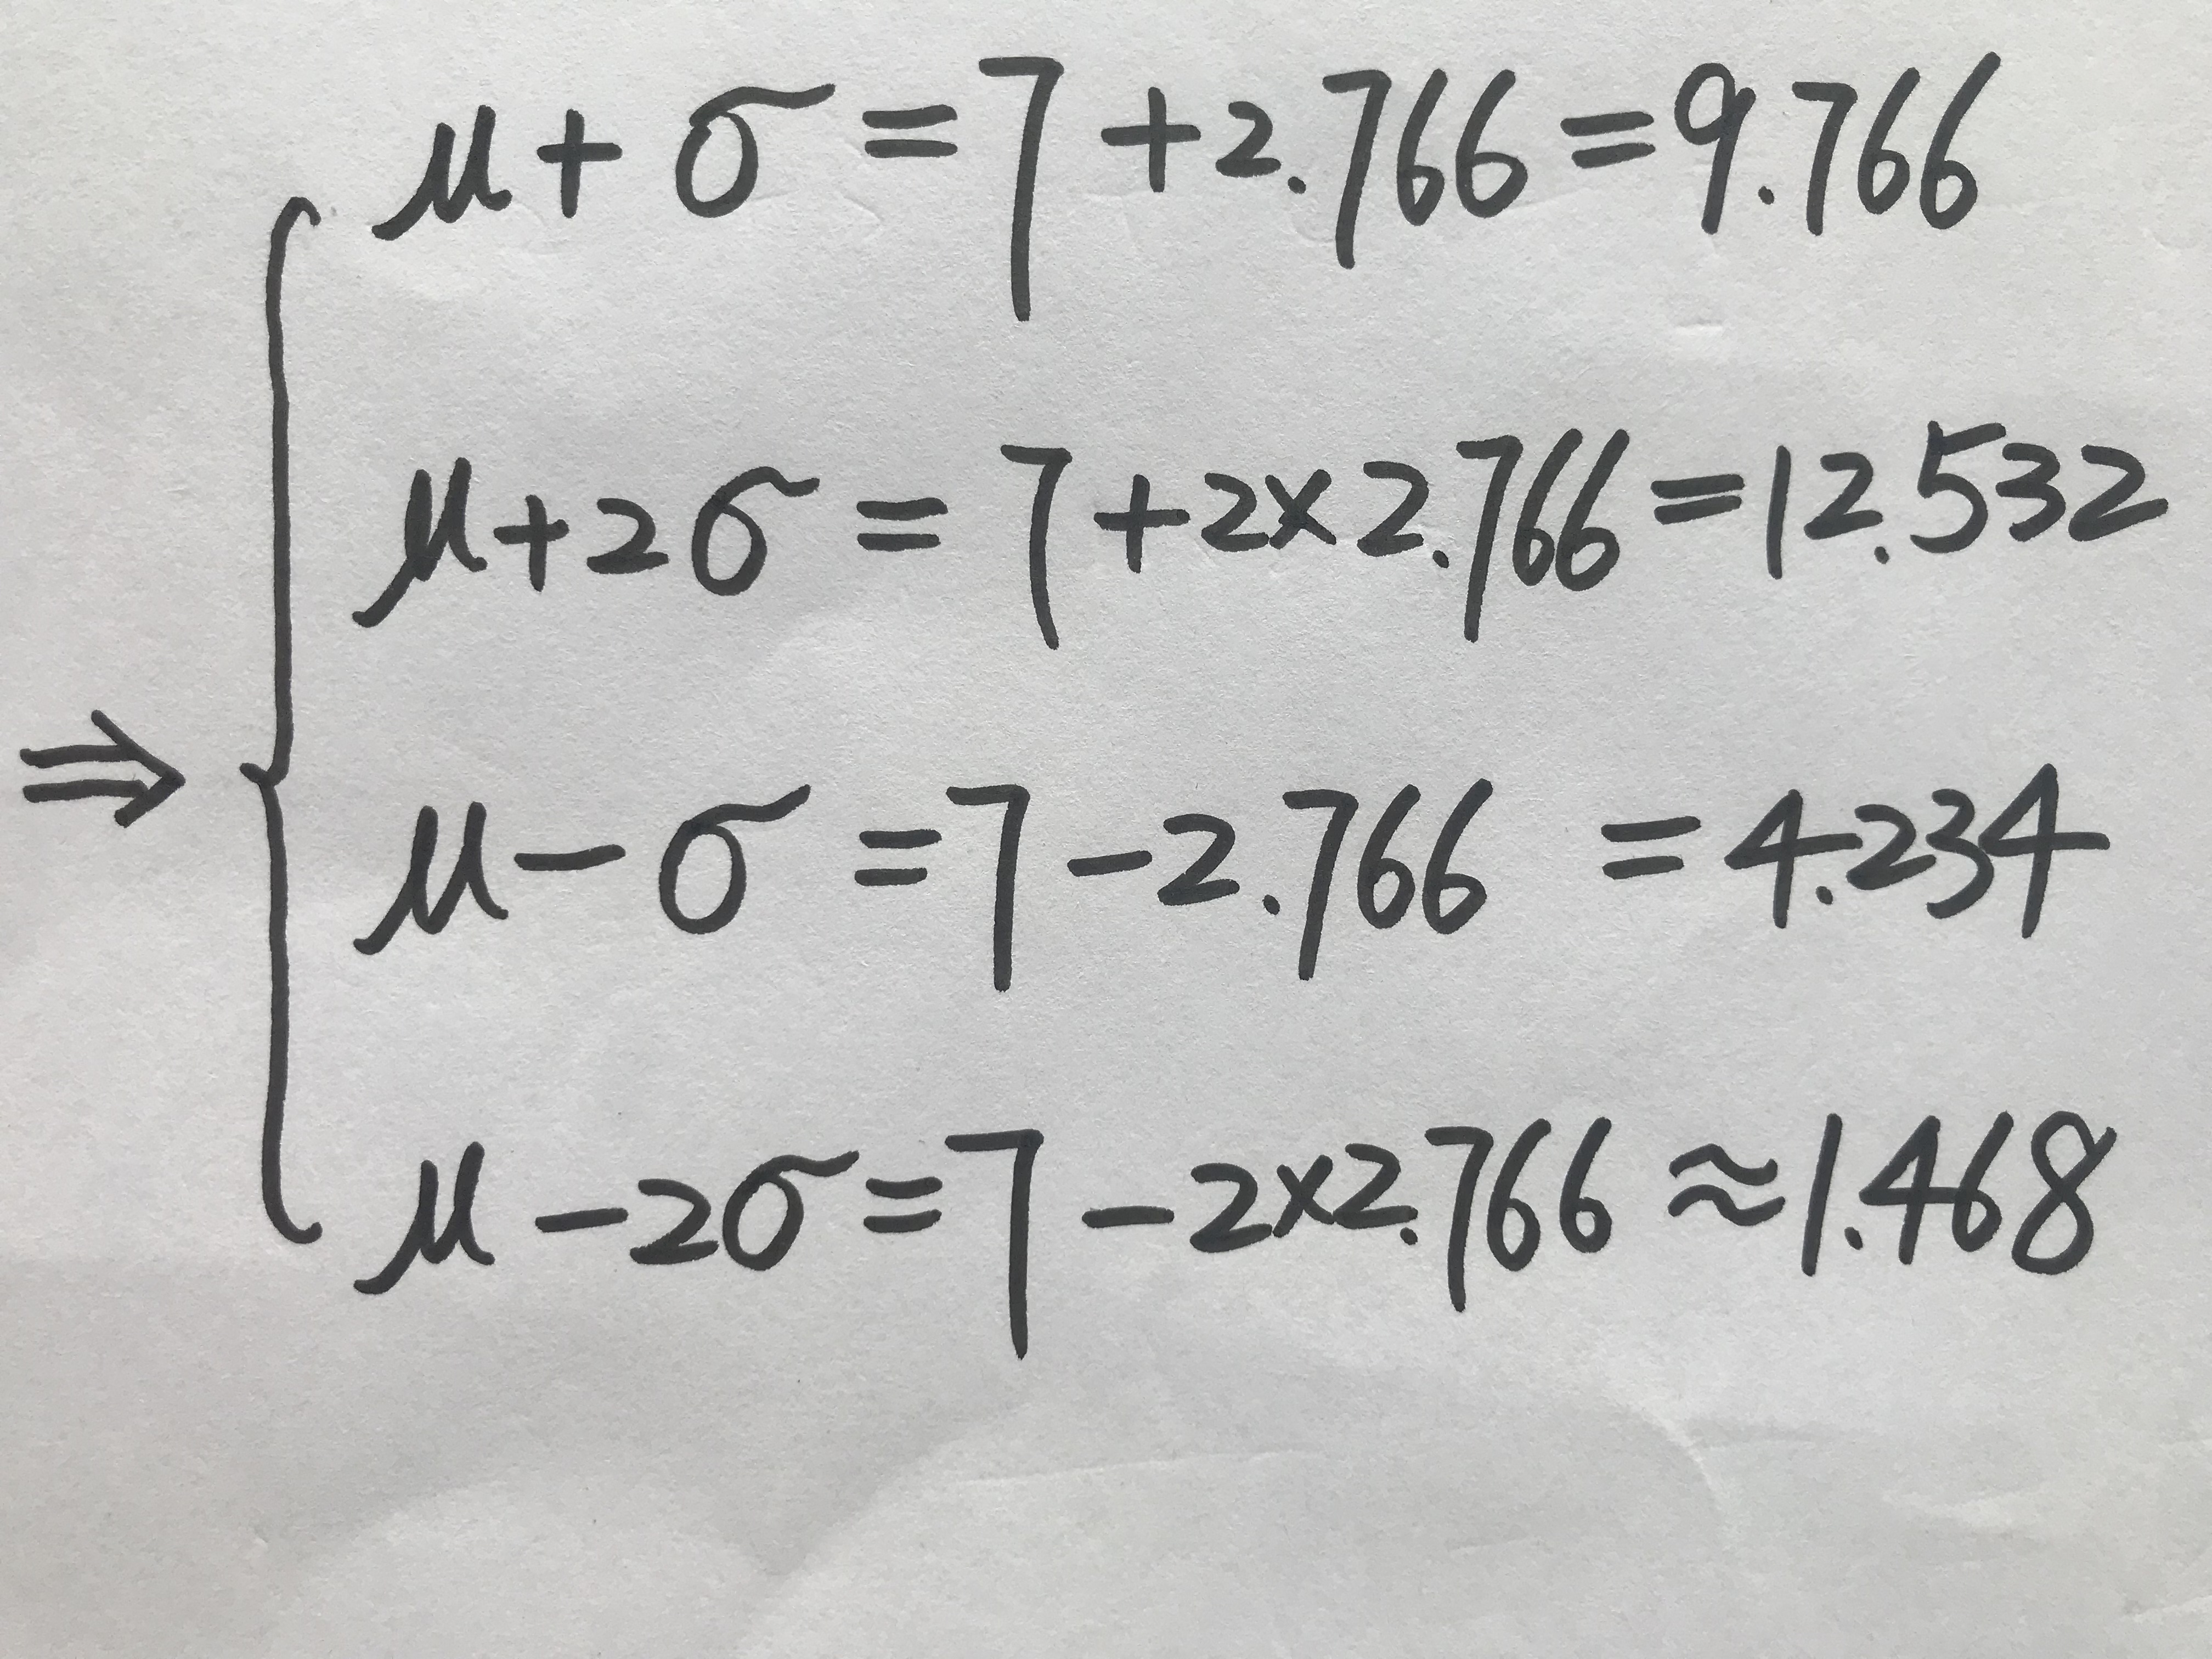 μ + σ = 7 + 2.766 = 9.766
μ + 2σ = 7 + 2 × 2.766 = 12.532
⇒ {
μ - σ = 7 - 2.766 = 4.234
μ - 2σ = 7 - 2 × 2.766 ≈ 1.468